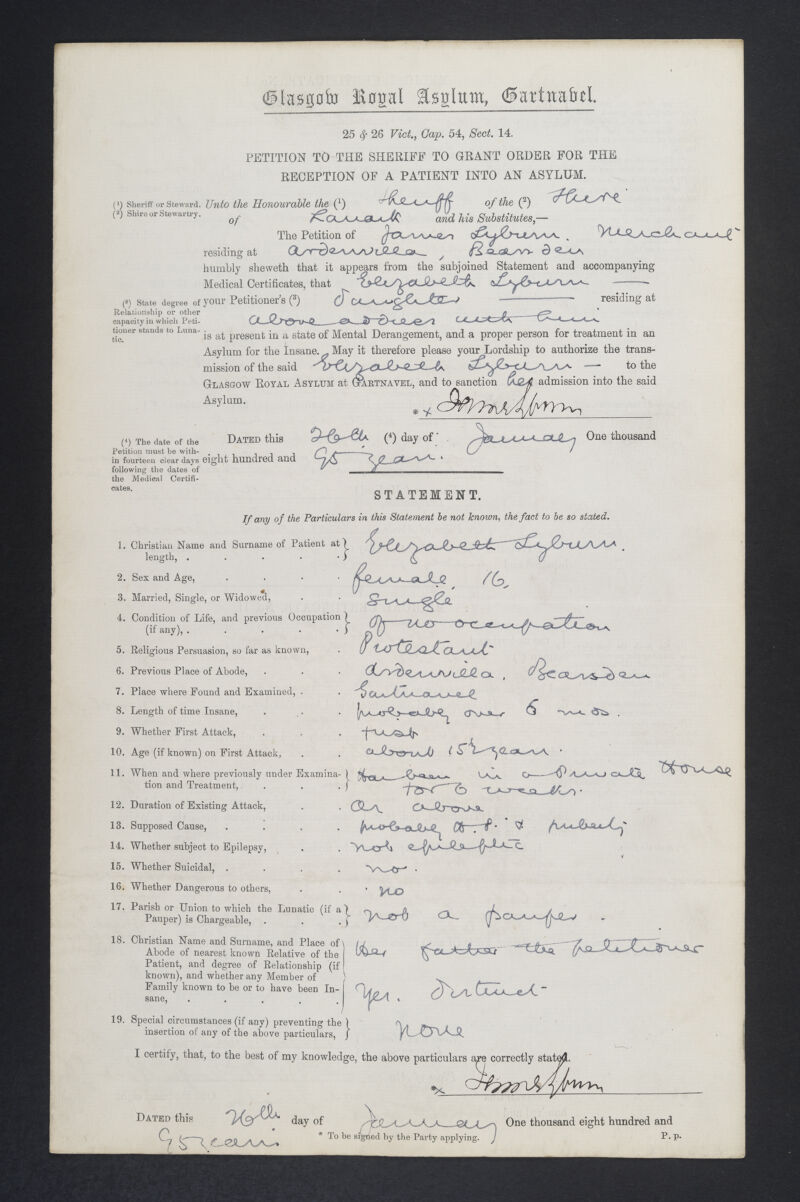 Glasgow Royal Asylum, Gartnavel.
25 & 26 Vict., Cap. 54, Sect. 14.
PETITION TO THE SHERIFF TO GRANT ORDER FOR THE
RECEPTION OF A PATIENT INTO AN ASYLUM.
(1) Sheriff or Steward.
(2) Shire or Stewartry.
Unto the Honourable the (1) Sheriff of the (2) Shire
of Lanark and his Substitutes,—
The Petition of James Lyburn. Merchant
residing at Ardenvilla, Bearsden
humbly sheweth that it appears from the subjoined Statement and accompanying
Medical Certificates, that Elizabeth Lyburn —
(3) State degree of
Relationship or other
capacity in which Peti-
tioner stands to Luna-
tic.
your Petitioner's (3) daughter — residing at
above address with him
is at present in a state of Mental Derangement, and a proper person for treatment in an
Asylum for the Insane. May it therefore please your Lordship to authorize the trans-
mission of the said Elizabeth Lyburn — to the
GLASGOW ROYAL ASYLUM AT GARTNAVEL, and to sanction her admission into the said
Asylum.
* x James Lyburn
(4) The date of the
Petition must be with-
in fourteen clear days
following the dates of
the Medical Certifi-
cates.
DATED this (4) day of January One thousand
eight hundred and 95 years.
STATEMENT.
If any of the Particulars in this Statement be not known, the fact to be so stated.
1. Christian Name and Surname of Patient at length, . . . . . Elizabeth Lyburn.
2. Sex and Age, . . . . female, 16,
3. Married, Single, or Widowed, . . single
4. Condition of Life, and previous Occupation (if any), . . . . . of no occupation
5. Religious Persuasion, so far as known, . Protestant
6. Previous Place of Abode, . . . Ardenvilla, Bearsden
7. Place where Found and Examined, . . Gartnavel
8. Length of time Insane, . . . probably over 6 mos.
9. Whether First Attack, . . . first
10. Age (if known) on First Attack, . . about 15½ years.
11. When and where previously under Examina-
tion and Treatment, . . . Has been in a Private House
for 6 weeks.
12. Duration of Existing Attack, . . As above
13. Supposed Cause, . . . . probably H.P. & puberty
14. Whether subject to Epilepsy, . . not epileptic
15. Whether Suicidal, . . . . no.
16. Whether Dangerous to others, . . no
17. Parish or Union to which the Lunatic (if a
Pauper) is Chargeable, . . . not a pauper.
18. Christian Name and Surname, and Place of
Abode of nearest known Relative of the
Patient, and degree of Relationship (if
known), and whether any Member of
Family known to be or to have been In-
sane, . . . . .
Her father the petitioner
Yes. distinct
19. Special circumstances (if any) preventing the
insertion of any of the above particulars, none
I certify, that, to the best of my knowledge, the above particulars are correctly stated.
* x James Lyburn
DATED this day of January One thousand eight hundred and
95 years
* To be signed by the Party applying.
P. p.